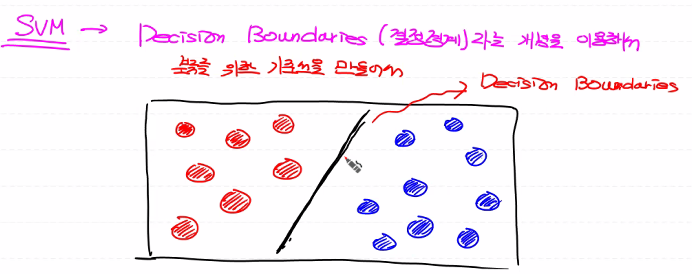 SVM → Decision Boundaries (결정경계) 라는 개념을 이용해서
분류를 위한 기준선을 만들어서
Decision Boundaries